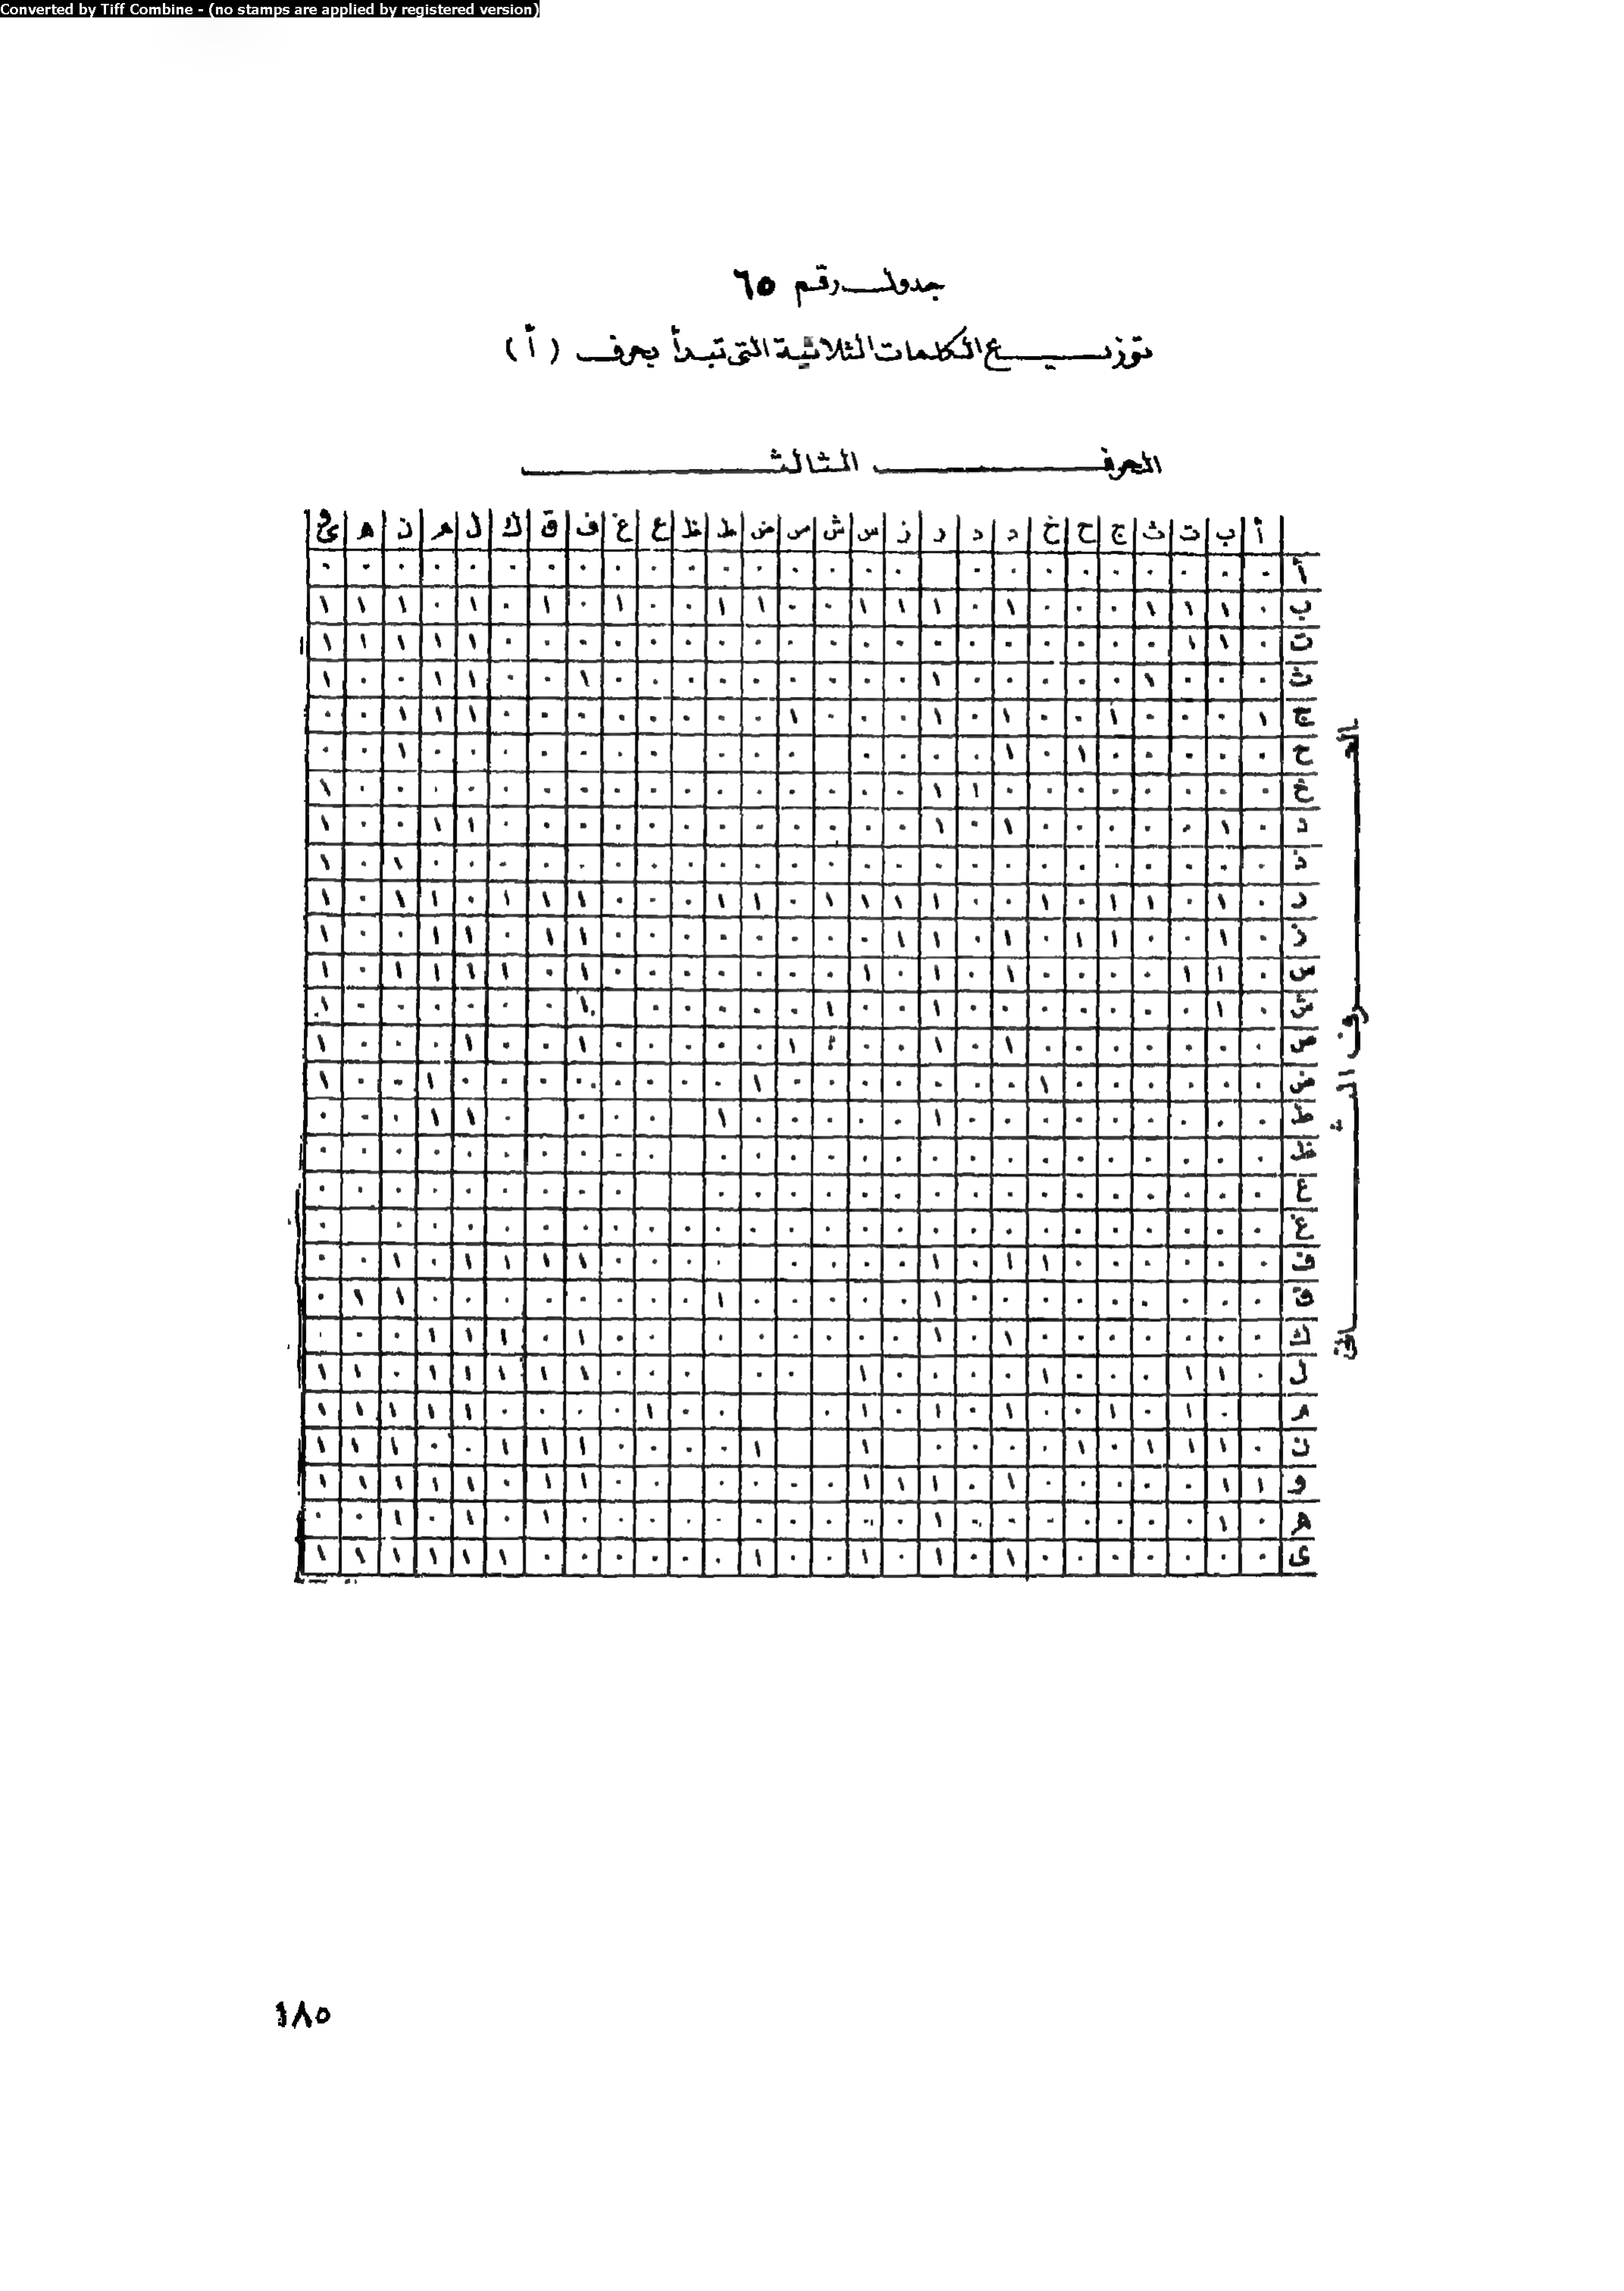 Converted by Tiff Combine - (no stamps are applied by registered version)
جدول رقم ٦٥
توزيع الكلمات الثلاثية التى تبدأ بحرف (أ)
الحرف الثالث
أ ب ت ث ج ح خ د د ر ز س ش ص ض ط ظ ع غ ف ق ك ل م ن ه ى
أ ٠ ٠ ٠ ٠ ٠ ٠ ٠ ٠ ٠ ٠ ٠ ٠ ٠ ٠ ٠ ٠ ٠ ٠ ٠ ٠ ٠ ٠ ٠ ٠ ٠ ٠
ب ٠ ١ ١ ١ ٠ ٠ ٠ ١ ٠ ١ ١ ١ ٠ ٠ ١ ١ ٠ ٠ ١ ٠ ١ ٠ ١ ٠ ١ ١ ١
ت ٠ ١ ١ ٠ ٠ ٠ ٠ ٠ ٠ ٠ ٠ ٠ ٠ ٠ ٠ ٠ ٠ ٠ ٠ ٠ ٠ ٠ ١ ١ ١ ١ ١
ث ٠ ٠ ٠ ١ ٠ ٠ ٠ ٠ ٠ ١ ٠ ٠ ٠ ٠ ٠ ٠ ٠ ٠ ٠ ١ ٠ ٠ ١ ١ ٠ ٠ ١
ج ١ ٠ ٠ ٠ ١ ٠ ٠ ١ ٠ ١ ٠ ٠ ٠ ١ ٠ ٠ ٠ ٠ ٠ ٠ ٠ ٠ ١ ١ ١ ٠ ٠
ح ٠ ٠ ٠ ٠ ٠ ١ ٠ ١ ٠ ٠ ٠ ٠ ٠ ٠ ٠ ٠ ٠ ٠ ٠ ٠ ٠ ٠ ١ ٠ ٠
خ ٠ ٠ ٠ ٠ ٠ ٠ ٠ ٠ ١ ١ ٠ ٠ ٠ ٠ ٠ ٠ ٠ ٠ ٠ ٠ ٠ ٠ ٠ ٠ ٠ ٠ ١
د ٠ ١ ٠ ٠ ٠ ٠ ٠ ١ ٠ ١ ٠ ٠ ٠ ٠ ٠ ٠ ٠ ٠ ٠ ٠ ٠ ٠ ١ ١ ٠ ٠ ١
ذ ٠ ٠ ٠ ٠ ٠ ٠ ٠ ٠ ٠ ٠ ٠ ٠ ٠ ٠ ٠ ٠ ٠ ٠ ٠ ٠ ٠ ٠ ٠ ٠ ١ ٠ ١
ر ٠ ١ ٠ ١ ١ ٠ ١ ٠ ٠ ١ ١ ١ ١ ٠ ١ ١ ٠ ٠ ٠ ١ ١ ١ ٠ ١ ١ ٠ ١
ز ٠ ١ ٠ ٠ ١ ١ ٠ ١ ٠ ١ ١ ٠ ٠ ٠ ٠ ٠ ٠ ٠ ٠ ١ ١ ٠ ١ ١ ٠ ٠ ١
س ٠ ١ ١ ٠ ٠ ٠ ٠ ١ ٠ ١ ٠ ١ ٠ ٠ ٠ ٠ ٠ ٠ ٠ ١ ٠ ١ ١ ١ ١ ٠ ١
ش ٠ ١ ٠ ٠ ٠ ٠ ٠ ٠ ٠ ١ ٠ ٠ ١ ٠ ٠ ٠ ٠ ٠ ١ ٠ ٠ ٠ ٠ ٠ ٠ ١
ص ٠ ٠ ٠ ٠ ٠ ٠ ٠ ١ ٠ ١ ٠ ٠ ١ ٠ ٠ ٠ ٠ ٠ ١ ٠ ٠ ١ ٠ ٠ ٠ ١
ض ٠ ٠ ٠ ٠ ٠ ٠ ١ ٠ ٠ ٠ ٠ ٠ ٠ ٠ ١ ٠ ٠ ٠ ٠ ٠ ٠ ٠ ٠ ١ ٠ ٠ ١
ط ٠ ٠ ٠ ٠ ٠ ٠ ٠ ٠ ٠ ١ ٠ ٠ ٠ ٠ ٠ ١ ٠ ٠ ٠ ٠ ١ ١ ٠ ٠ ٠
ظ ٠ ٠ ٠ ٠ ٠ ٠ ٠ ٠ ٠ ٠ ٠ ٠ ٠ ٠ ٠ ٠ ٠ ٠ ٠ ٠ ٠ ٠ ٠ ٠ ٠ ٠ ٠
ع ٠ ٠ ٠ ٠ ٠ ٠ ٠ ٠ ٠ ٠ ٠ ٠ ٠ ٠ ٠ ٠ ٠ ٠ ٠ ٠ ٠ ٠ ٠ ٠ ٠
غ ٠ ٠ ٠ ٠ ٠ ٠ ٠ ٠ ٠ ٠ ٠ ٠ ٠ ٠ ٠ ٠ ٠ ٠ ٠ ٠ ٠ ٠ ٠ ٠ ٠ ٠
ف ٠ ٠ ٠ ٠ ٠ ٠ ١ ١ ٠ ١ ٠ ٠ ٠ ٠ ٠ ٠ ٠ ٠ ١ ١ ١ ١ ٠ ١ ٠ ٠
ق ٠ ٠ ٠ ٠ ٠ ٠ ٠ ٠ ٠ ١ ٠ ٠ ٠ ٠ ٠ ١ ٠ ٠ ٠ ٠ ٠ ٠ ٠ ٠ ١ ١ ٠
ك ٠ ٠ ٠ ٠ ٠ ٠ ٠ ١ ٠ ١ ٠ ٠ ٠ ٠ ٠ ٠ ٠ ٠ ١ ٠ ١ ١ ١ ٠ ٠ ٠
ل ٠ ١ ١ ٠ ٠ ٠ ١ ٠ ٠ ٠ ٠ ١ ٠ ٠ ٠ ٠ ١ ١ ١ ١ ١ ٠ ١ ١
م ٠ ١ ٠ ١ ٠ ٠ ١ ٠ ١ ٠ ١ ٠ ٠ ٠ ١ ٠ ٠ ٠ ٠ ١ ١ ١ ١ ١
ن ٠ ١ ١ ١ ٠ ١ ٠ ٠ ٠ ٠ ١ ١ ٠ ٠ ٠ ٠ ١ ١ ١ ٠ ٠ ١ ١ ١
و ١ ١ ٠ ٠ ٠ ٠ ٠ ١ ٠ ١ ١ ١ ٠ ٠ ٠ ٠ ٠ ٠ ١ ١ ٠ ١ ١ ١ ١ ١
ه ٠ ١ ٠ ٠ ٠ ٠ ٠ ٠ ٠ ١ ٠ ٠ ٠ ٠ ٠ ٠ ٠ ٠ ٠ ٠ ١ ٠ ١ ٠ ١ ٠ ٠
ى ٠ ٠ ٠ ٠ ٠ ٠ ٠ ١ ٠ ١ ٠ ١ ٠ ٠ ١ ٠ ٠ ٠ ٠ ٠ ٠ ١ ١ ١ ١ ١ ١
الحرف الثانى
١٨٥